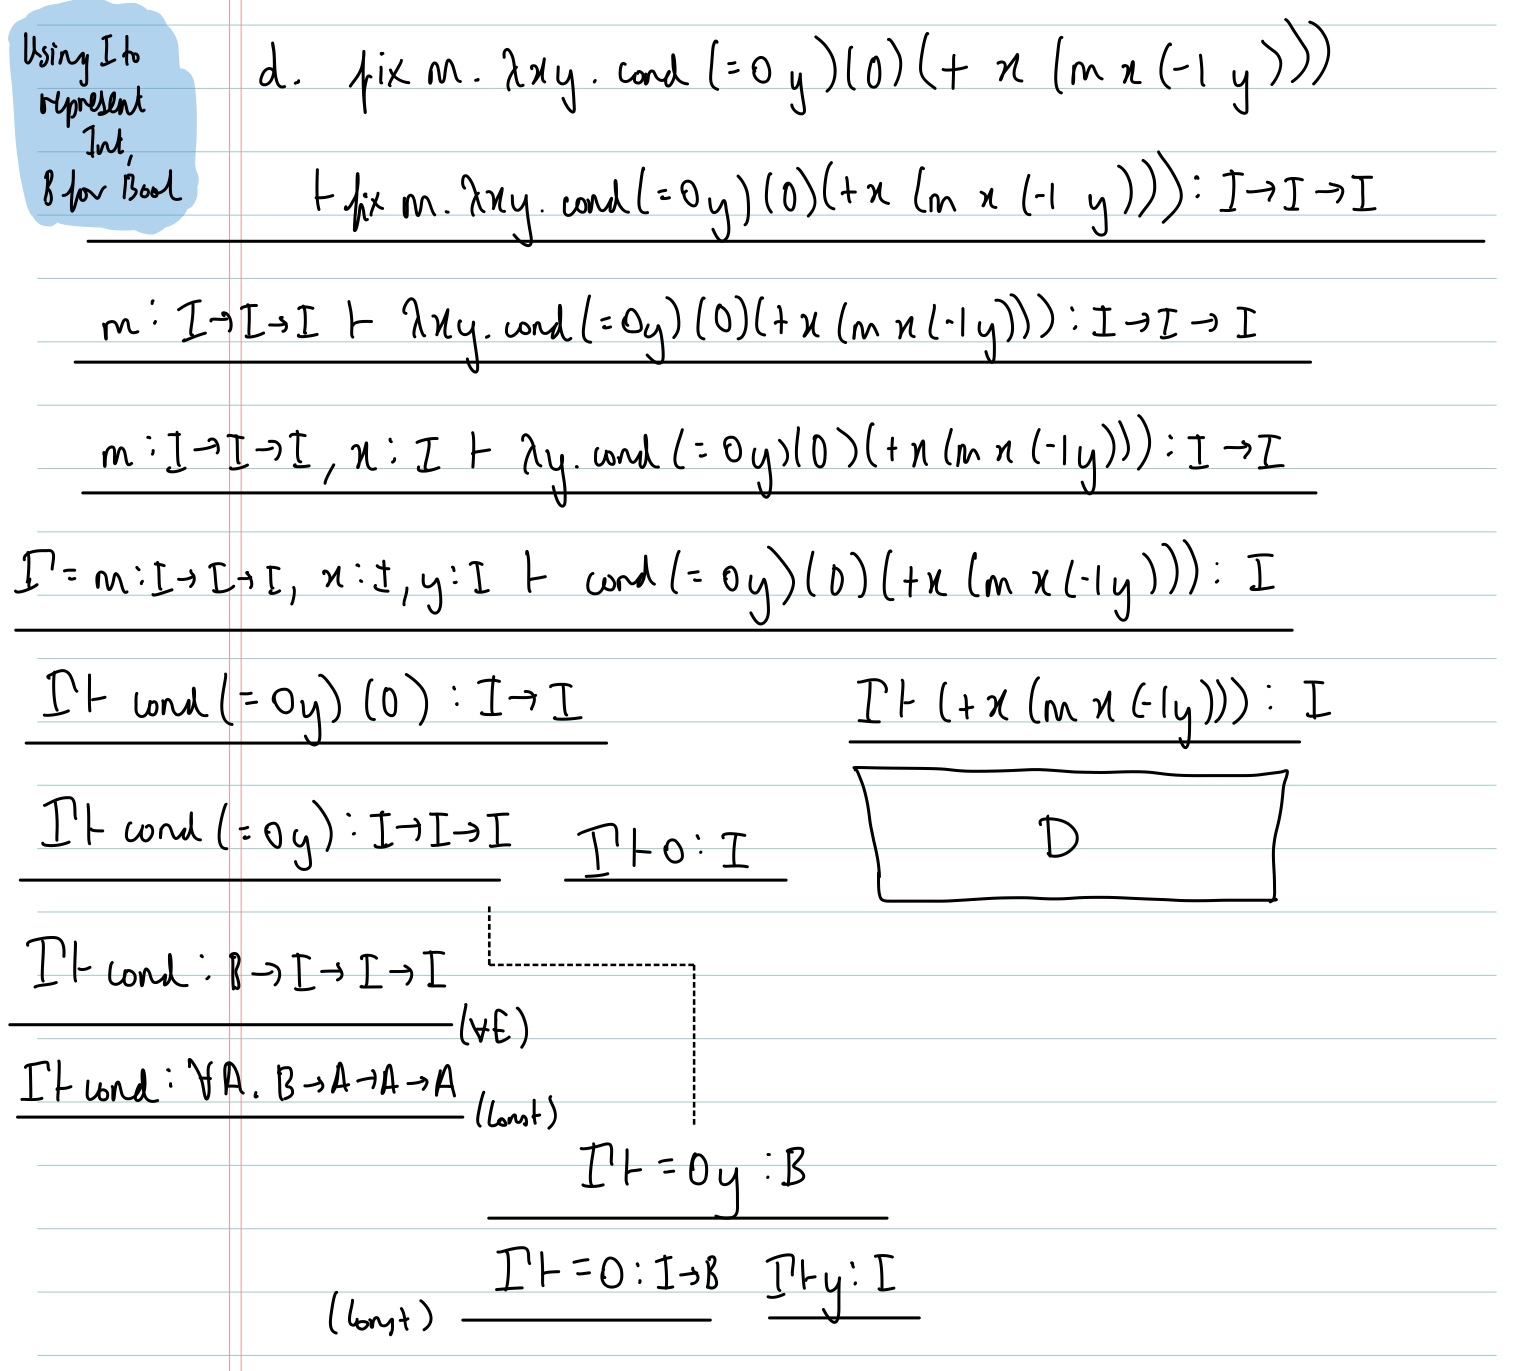 Using I to
represent
Int,
B for Bool
d. fix m. λxy. cond (=0 y)(0)(+ x (m x (-1 y)))
⊢ fix m. λxy. cond (=0y)(0)(+x (m x (-1 y))) : I→I→I
m : I→I→I ⊢ λxy. cond (=0y)(0)(+x (m x (-1y))) : I→I→I
m : I→I→I, x : I ⊢ λy. cond (=0y)(0)(+x (m x (-1y))) : I→I
Γ = m : I→I→I, x : I, y : I ⊢ cond (=0y)(0)(+x (m x (-1y))) : I
Γ ⊢ cond (=0y)(0) : I→I Γ ⊢ (+x (m x (-1y))) : I
Γ ⊢ cond (=0y) : I→I→I Γ ⊢ 0 : I D
Γ ⊢ cond : B→I→I→I
(∀E)
Γ ⊢ cond : ∀A. B→A→A→A
(Const)
Γ ⊢ =0y : B
Γ ⊢ =0 : I→B Γ ⊢ y : I
(Const)